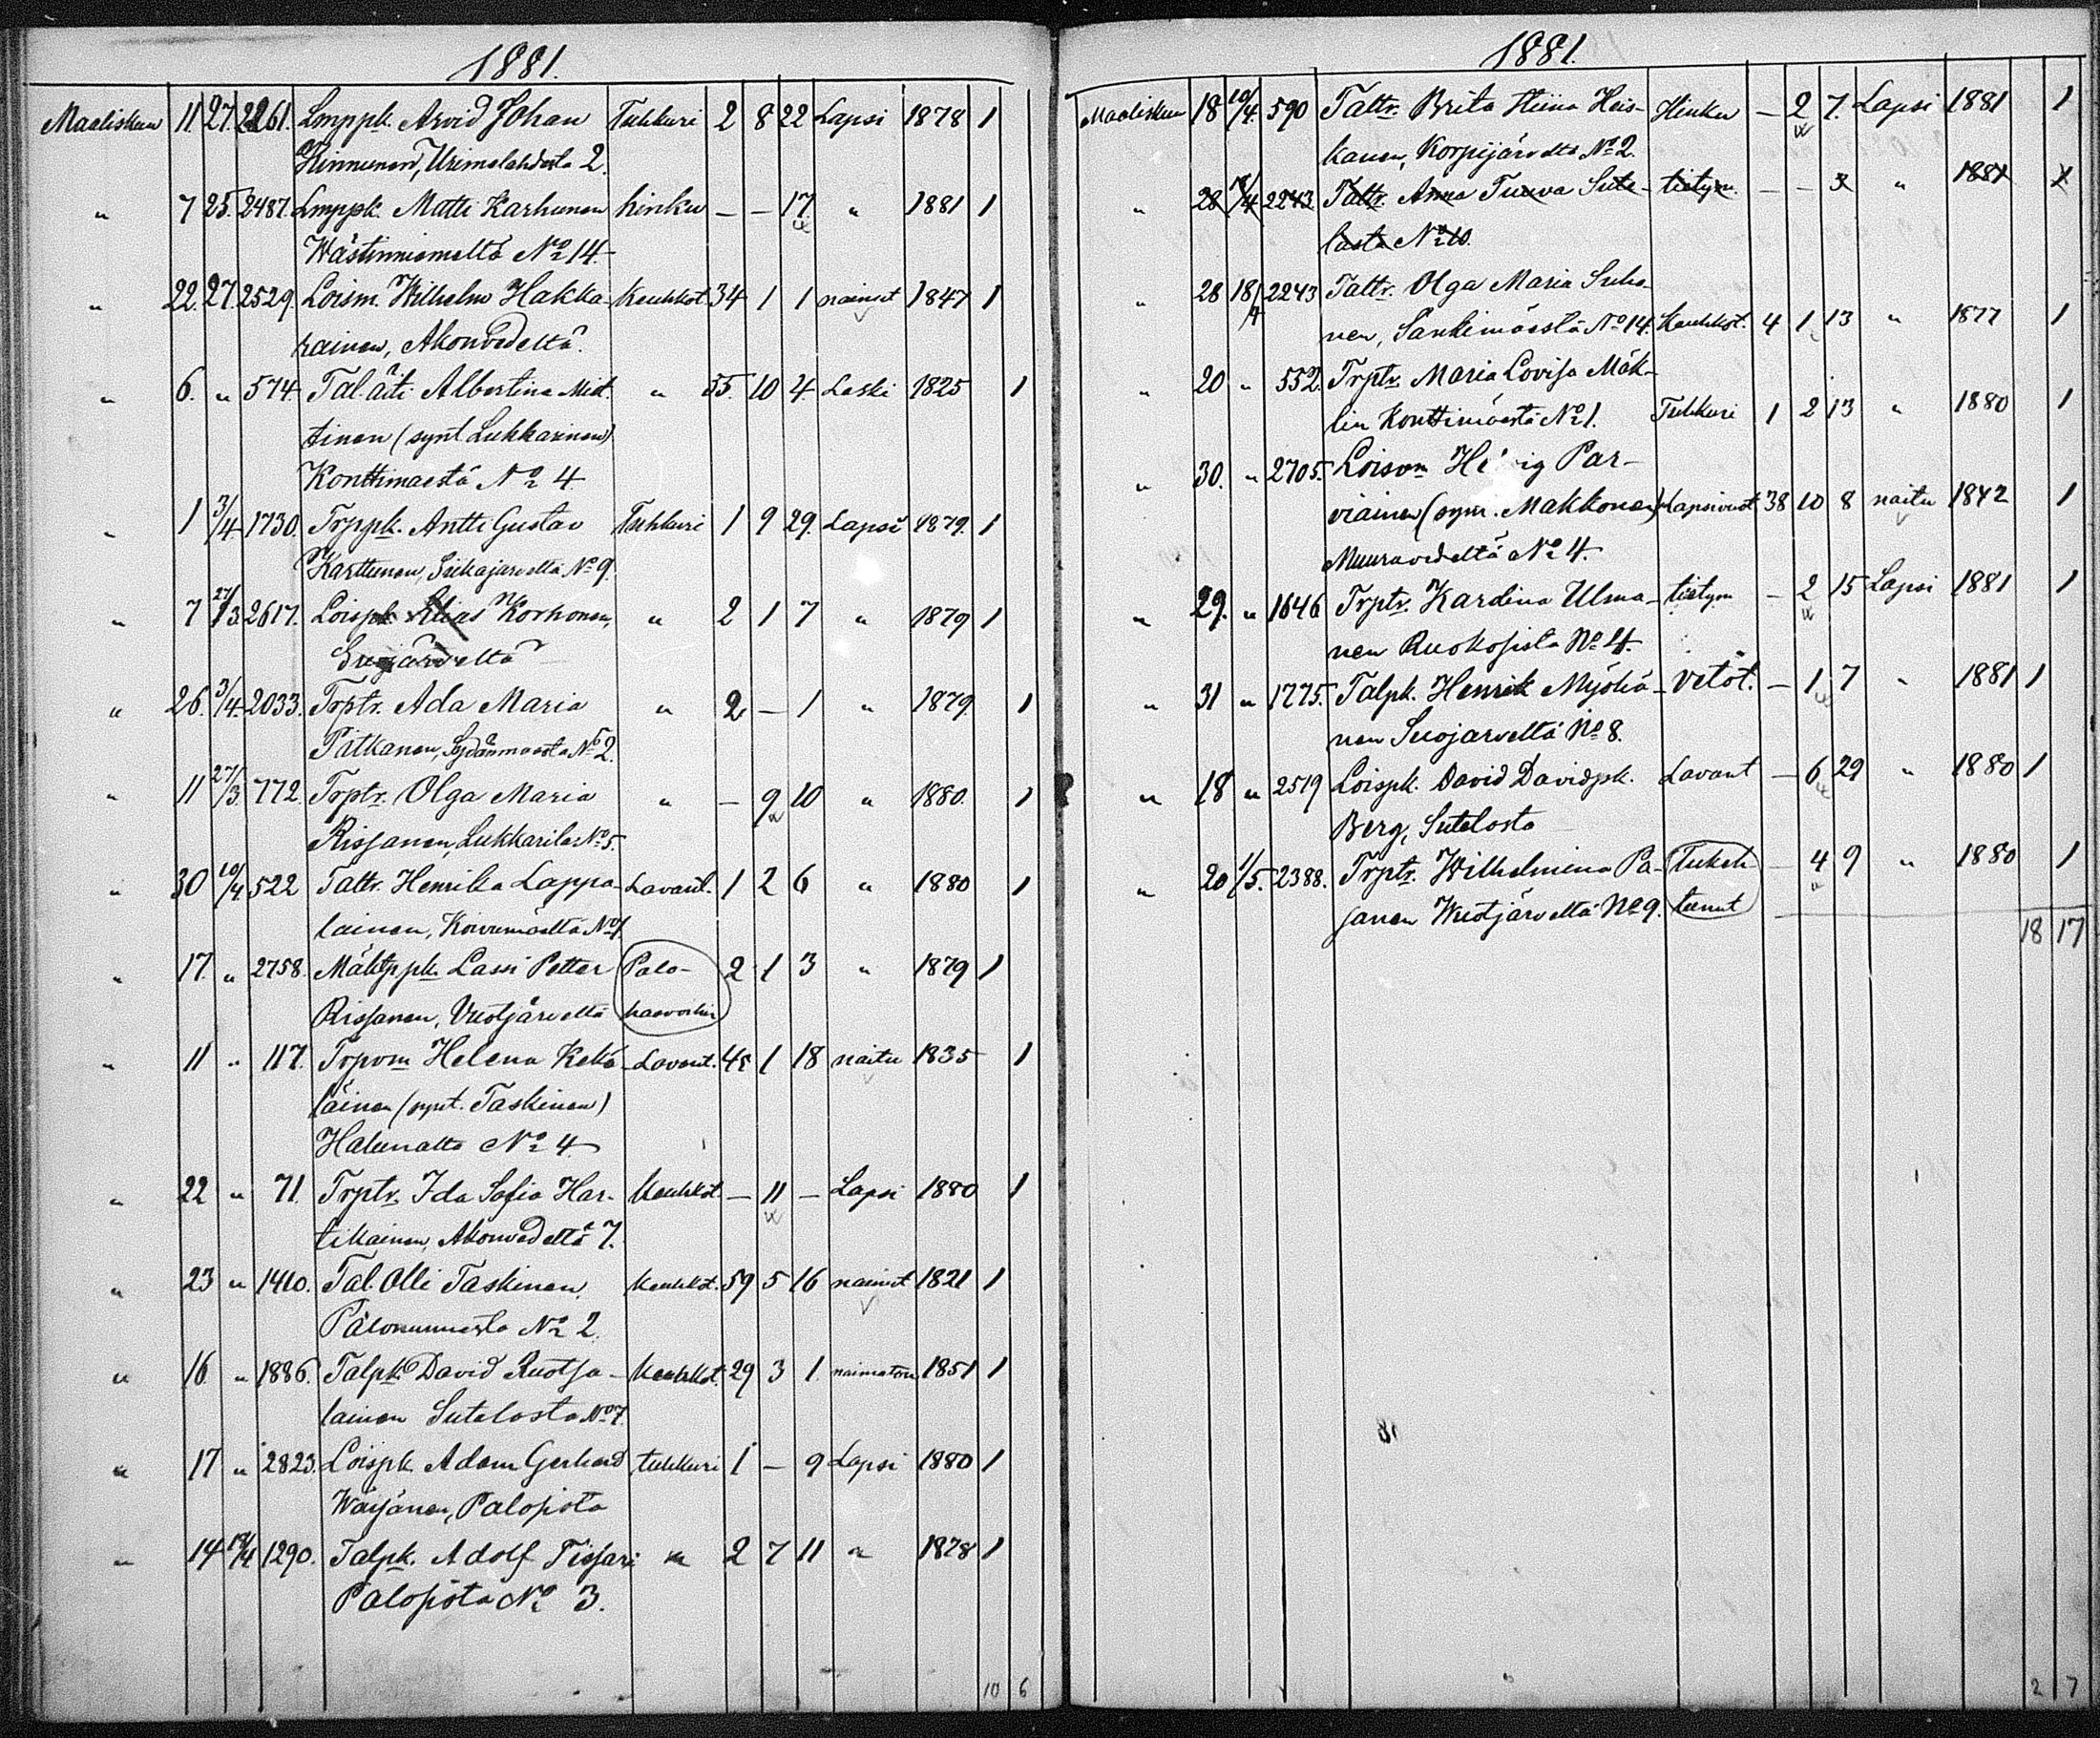 1881.
Maaliskuu 11. 27. 2261. Lmppk. Arvid Johan Tuhkuri 2 8 22 Lapsi 1878 1
Kinnunen, Urimolahdesta 2.
" 7 25. 2487. Lmppk. Matti Karhunen hinku — — 17 " 1881 1
Wästinniemeltä No 14.
" 22. 27. 2529. Loism. Wilhelm Hakka- Keuhkot. 34 1 1 nainut 1847 1
rainen, Akonvedeltä.
" 6. " 574 Tal. äiti Albertina Mist. " 55. 10 4 Leski 1825 1
tinen (synt. Lukkarinen)
Konttimaestä No 4
" 1 3/4 1730. Trppk. Antti Gustav Tuhkuri 1 9 29. Lapsi 1879. 1
Karttunen, Siikajarveltä No 9.
" 7 27/3 2617. Loispk. Elias Korhonen, " 2 1 7 " 1879 1
Suojärveltä
" 26. 3/4. 2033. Trptr. Ada Maria " 2 — 1 " 1879. 1
Pitkanen, Sydänmaasta No 2.
" 11 27/3. 772. Trptr. Olga Maria " — 9 10 " 1880. 1
Rissanen, Lukkarila No 5.
" 30 10/4 522 Taltr. Henrika Lappa- Lavant. 1 2 6 " 1880 1
lainen, Koivumäeltä No 1.
" 17. " 2758. Mäktppk. Lassi Petter Palo- 2 1 3 " 1879 1
Rissanen, Vuotjärveltä haavoihin
" 11 " 117. Trpvm Helena Kekä- Lavant. 45 1 18 naitu 1835 1
läinen (synt. Taskinen)
Halunalta No 4
" 22 " 71. Trptr. Ida Sofia Har- Keuhkot. — 11 — Lapsi 1880 1
tikainen, Akonvedeltä 7.
" 23 " 1410. Tal. Olli Taskinen. Keuhkot. 59 5 16 nainut 1821 1
Pälonurmesta No 2.
" 16. " 1886. Talpk. David Ruotsa- Keuhkot. 29 3 1 naimaton 1851 1
lainen Sutelasta No 7.
" 17 " 2823. Loispk. Adam Gerhard tuhkuri 1 — 9 Lapsi 1880 1
Wäisänen, Palosista
" 14 18/4 1290. Talpk. Adolf Tissari " 2 7 11 " 1878 1
Palosista No 3.
10 6
1881.
Maaliskuu 18 10/4. 590 Taltr. Brita Hiina Heis- Hinku — 2 7. Lapsi 1881 1
kanen, Korpijärveltä No 2.
" 28 2243 Taltr. Anna Tuova Sute- tietym. — — 3 " 1881 1
lasta No 10.
" 28 18/4 2243 Taltr. Olga Maria Suho-
nen, Sänkimäestä No 14. Keuhkot. 4 1 13 " 1877 1
" 20 " 552. Trptr. Maria Lovisa Mäk-
lin Konttimäestä No 1. Tuhkuri 1 2 13 " 1880 1
" 30. " 2705. Loisvm Par-
viainen (synt. Makkonen) Lapsivuot. 38 10 8 naitu 1842 1
Muuravedeltä No 4.
29. " 1646 Trptr. Karolina Ulma- tietym — 2 15 Lapsi 1881 1
nen Ruokosista No 4.
" 31 " 1775. Talpk. Henrik Myöhä- vetöt. — 1 7 " 1881 1
nen Suojarveltä No 8.
" 18 " 2519 Loispk. David Davidpk. Lavant — 6 29 " 1880 1
Berg, Sutelasta
" 20 1/5. 2388. Trptr. Wilhelmina Pa- Tukeh- — 4 9 " 1880 1
sanen Wuotjärveltä No 9. tunut
18 17
2 7